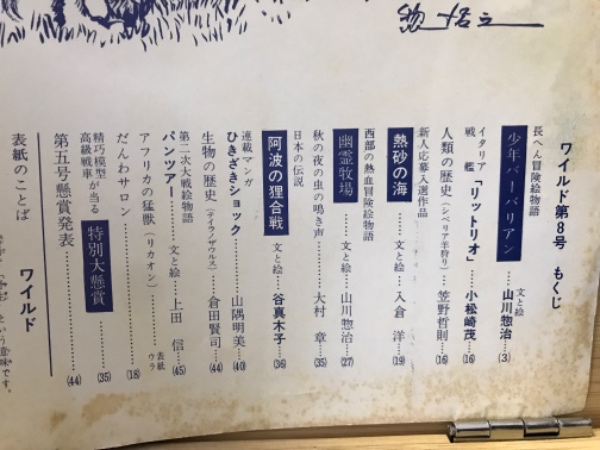 ワイルド第8号 もくじ
長へん冒険絵物語
少年バーバリアン……文と絵 山川惣治…(3)
イタリア戦艦「リットリオ」……小松崎茂…(16)
人類の歴史(シベリア羊狩り)……笠野哲則…(16)
新人応募入選作品
熱砂の海……文と絵……入倉 洋…(19)
西部の熱血冒険絵物語
幽霊牧場……文と絵……山川惣治…(27)
秋の夜の虫の鳴き声……大村 章…(35)
日本の伝説
阿波の狸合戦 文と絵……谷真木子…(36)
連載マンガ
ひきざきショック……山隅明美…(40)
生物の歴史(タイラノザウルス)……倉田賢司…(44)
第二次大戦絵物語
パンツアー……文と絵……上田 信…(45)
アフリカの猛獣(リカオン)……表紙ウラ
だんわサロン……(18)
精巧模型高級戦車が当る 特別大懸賞……(35)
第五号懸賞発表……(44)
表紙のことば
ワイルド
という意味です。